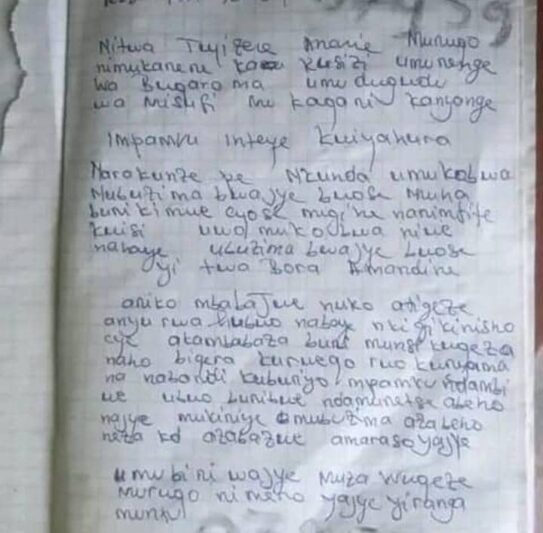 Nitwa Tuyizere Anarie Murugo
nimukanene kusizi umurenge
wa Bugarama umudugudu
wa Misufi mu kagani kanyonge
Impamvu inteye kwiyahura
Narakunze pe Nkunda umukobwa
Mubuzima bwajye bwose Muha
bunikimwe cyose mugihe nanimfite
kwisi uwo mukobwa niwe
nabaye ubuzima bwajye bwose
yitwa Bora Amandine
ariko mbabajwe nuko atigeze
anyurwa ubuwo nabaye nkigikinisho
cye akambabaza buri munsi kugeza
naho bigera kurwego rwo kunyama
na nabandi kubwiyo mpamvu ndambi
we ubwo bunibwe ndamuretse abeho
najye mukiniye mubuzima azabeho
neza ko azabazwe amaraso yajye
umubiri wajye muza wugeze
murugo nimero yajye yiranga
muntu